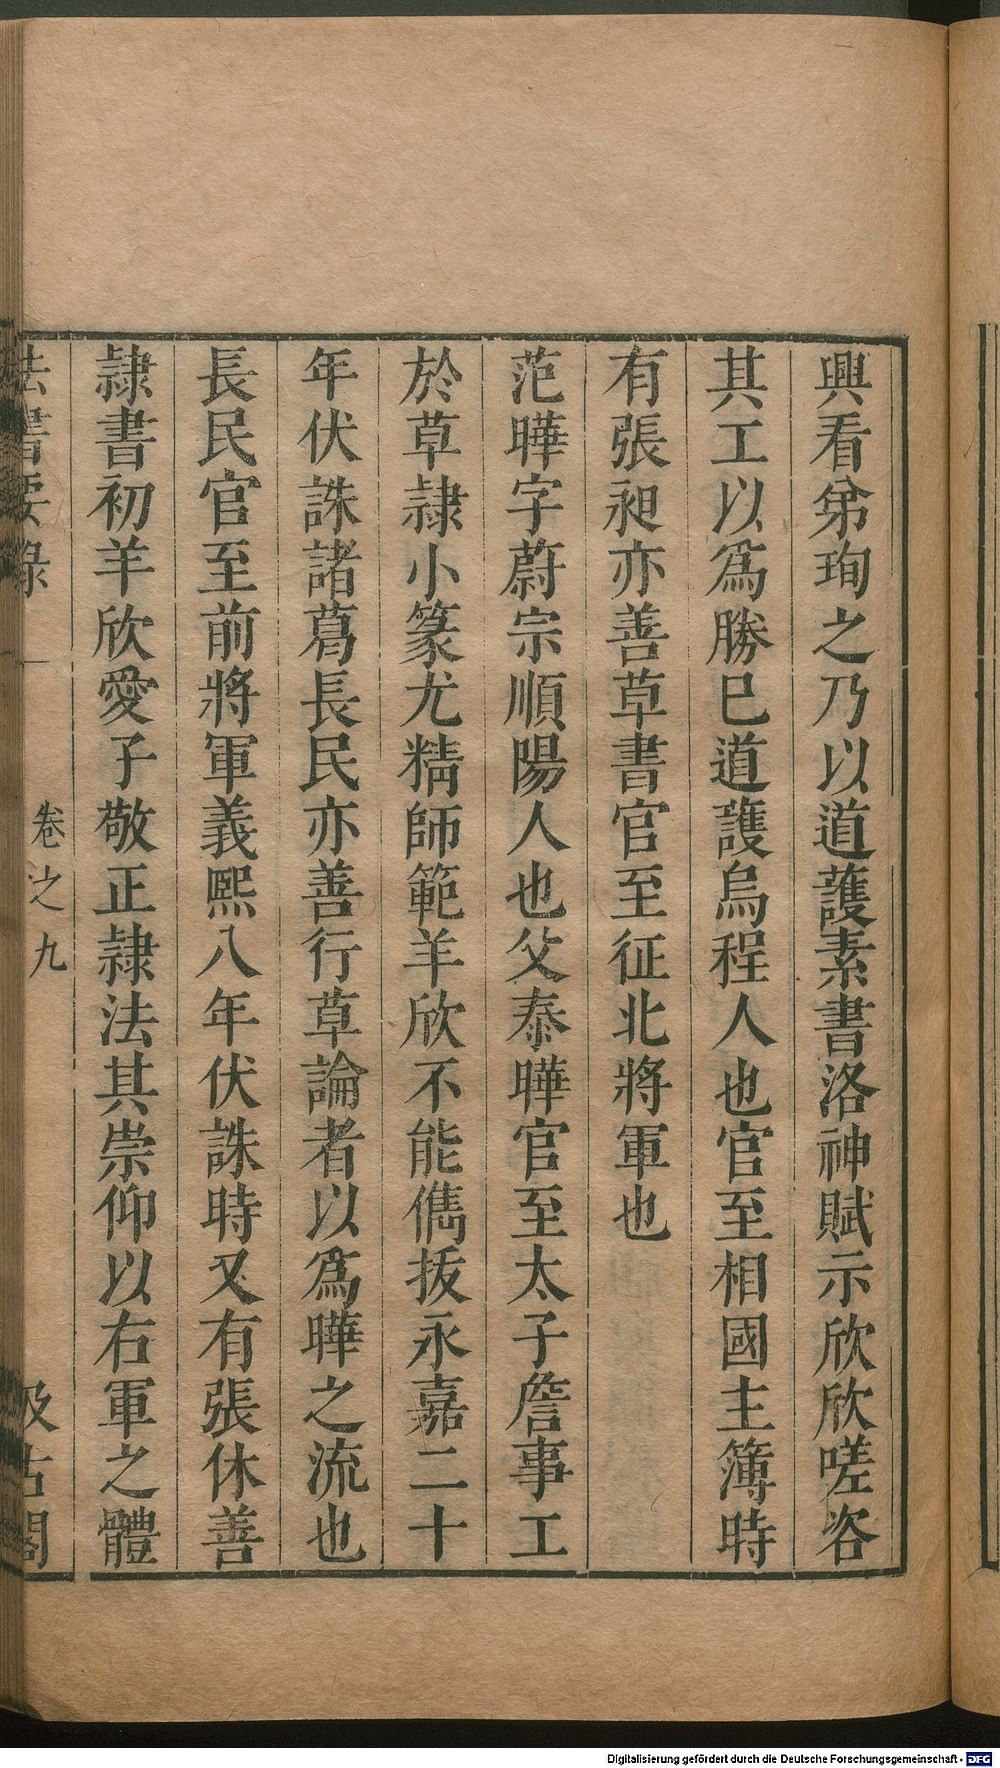 興看弟珣之乃以道護素書洛神賦示欣欣嗟咨
其工以為勝巳道護烏程人也官至相國主簿時
有張昶亦善草書官至征北將軍也
范曄字蔚宗順陽人也父泰曄官至太子詹事工
於草隷小篆尤精師範羊欣不能儁拔永嘉二十
年伏誅諸葛長民亦善行草論者以為曄之流也
長民官至前將軍義熙八年伏誅時又有張休善
隷書初羊欣愛子敬正隷法其崇仰以右軍之體
法書要錄
卷之九
汲古閣
Digitalisierung gefördert durch die Deutsche Forschungsgemeinschaft - DFG